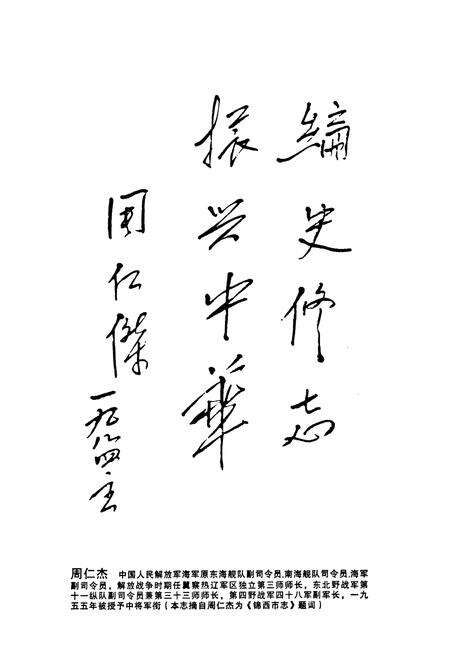 编史修志
振兴中华
周仁傑
一九八四年
周仁杰 中国人民解放军海军原东海舰队副司令员,南海舰队司令员,海军
副司令员，解放战争时期任冀察热辽军区独立第三师师长，东北野战军第
十一纵队副司令员兼第三十三师师长，第四野战军四十八军副军长，一九
五五年被授予中将军衔（本志摘自周仁杰为《锦西市志》题词）